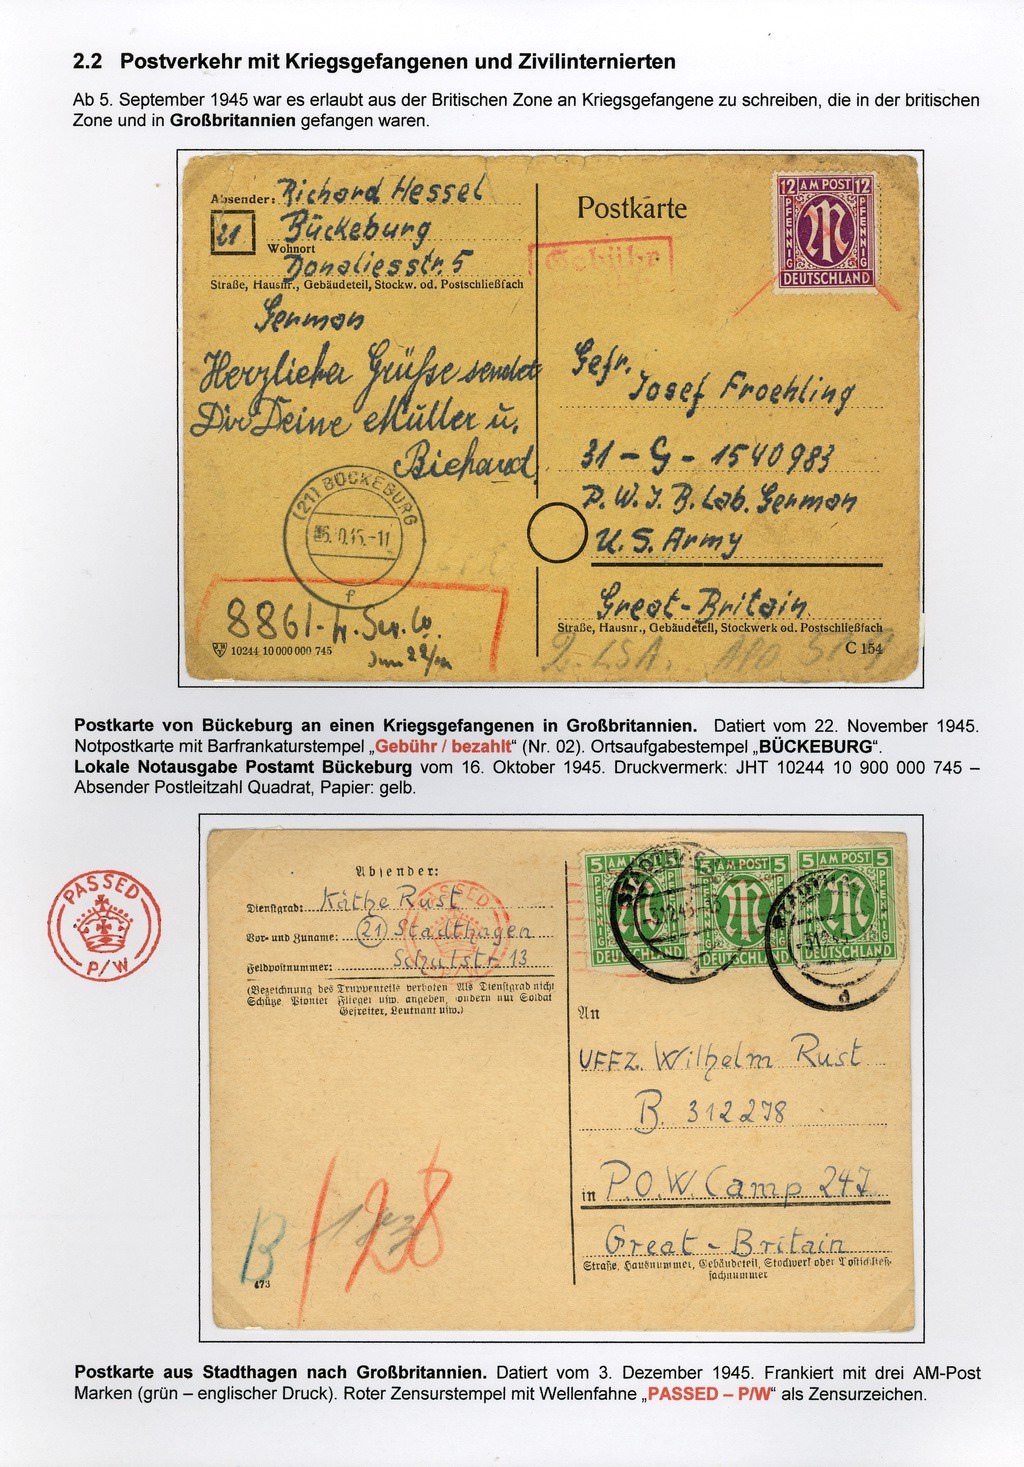 2.2 Postverkehr mit Kriegsgefangenen und Zivilinternierten
Ab 5. September 1945 war es erlaubt aus der Britischen Zone an Kriegsgefangene zu schreiben, die in der britischen
Zone und in Großbritannien gefangen waren.
Absender: Richard Hessel
21 Bückeburg
Wohnort
Donaliesstr. 5
Straße, Hausnr., Gebäudeteil, Stockw. od. Postschließfach
German
Herzliche Grüße sendet
Dir Deine Mutter u.
Richard.
(21) BÜCKEBURG
f
8861-
10244 10 000 000 745
Postkarte
Gebühr
12 AM POST 12
PFENNIG
PFENNIG
M
DEUTSCHLAND
Gefr.
Josef Froehling
31-G-1540983
P.W.I.B. Lab. German
U.S. Army
Great-Britain
Straße, Hausnr., Gebäudeteil, Stockwerk od. Postschließfach
C 154
Postkarte von Bückeburg an einen Kriegsgefangenen in Großbritannien. Datiert vom 22. November 1945.
Notpostkarte mit Barfrankaturstempel „Gebühr / bezahlt“ (Nr. 02). Ortsaufgabestempel „BÜCKEBURG“.
Lokale Notausgabe Postamt Bückeburg vom 16. Oktober 1945. Druckvermerk: JHT 10244 10 900 000 745 –
Absender Postleitzahl Quadrat, Papier: gelb.
PASSED
P/W
Absender:
Dienstgrad: Käthe Rust
Vor- und Zuname: (21) Stadthagen
Feldpostnummer: Schulstr. 13
(Bezeichnung des Truppenteils verboten Als Dienstgrad nicht
Schütze, Pionier Flieger usw. angeben, sondern nur Soldat
Gefreiter, Leutnant usw.)
PASSED
5 AM POST 5
PFENNIG
DEUTSCHLAND
5 AM POST 5
PFENNIG
DEUTSCHLAND
5 AM POST 5
PFENNIG
DEUTSCHLAND
d
An
UFFZ. Wilhelm Rust
B. 312278
in P.O.W. Camp 247
Great-Britain
Straße, Hausnummer, Gebäudeteil, Stockwerk oder Postschließ-
fachnummer
B
/28
473
Postkarte aus Stadthagen nach Großbritannien. Datiert vom 3. Dezember 1945. Frankiert mit drei AM-Post
Marken (grün – englischer Druck). Roter Zensurstempel mit Wellenfahne „PASSED – P/W“ als Zensurzeichen.